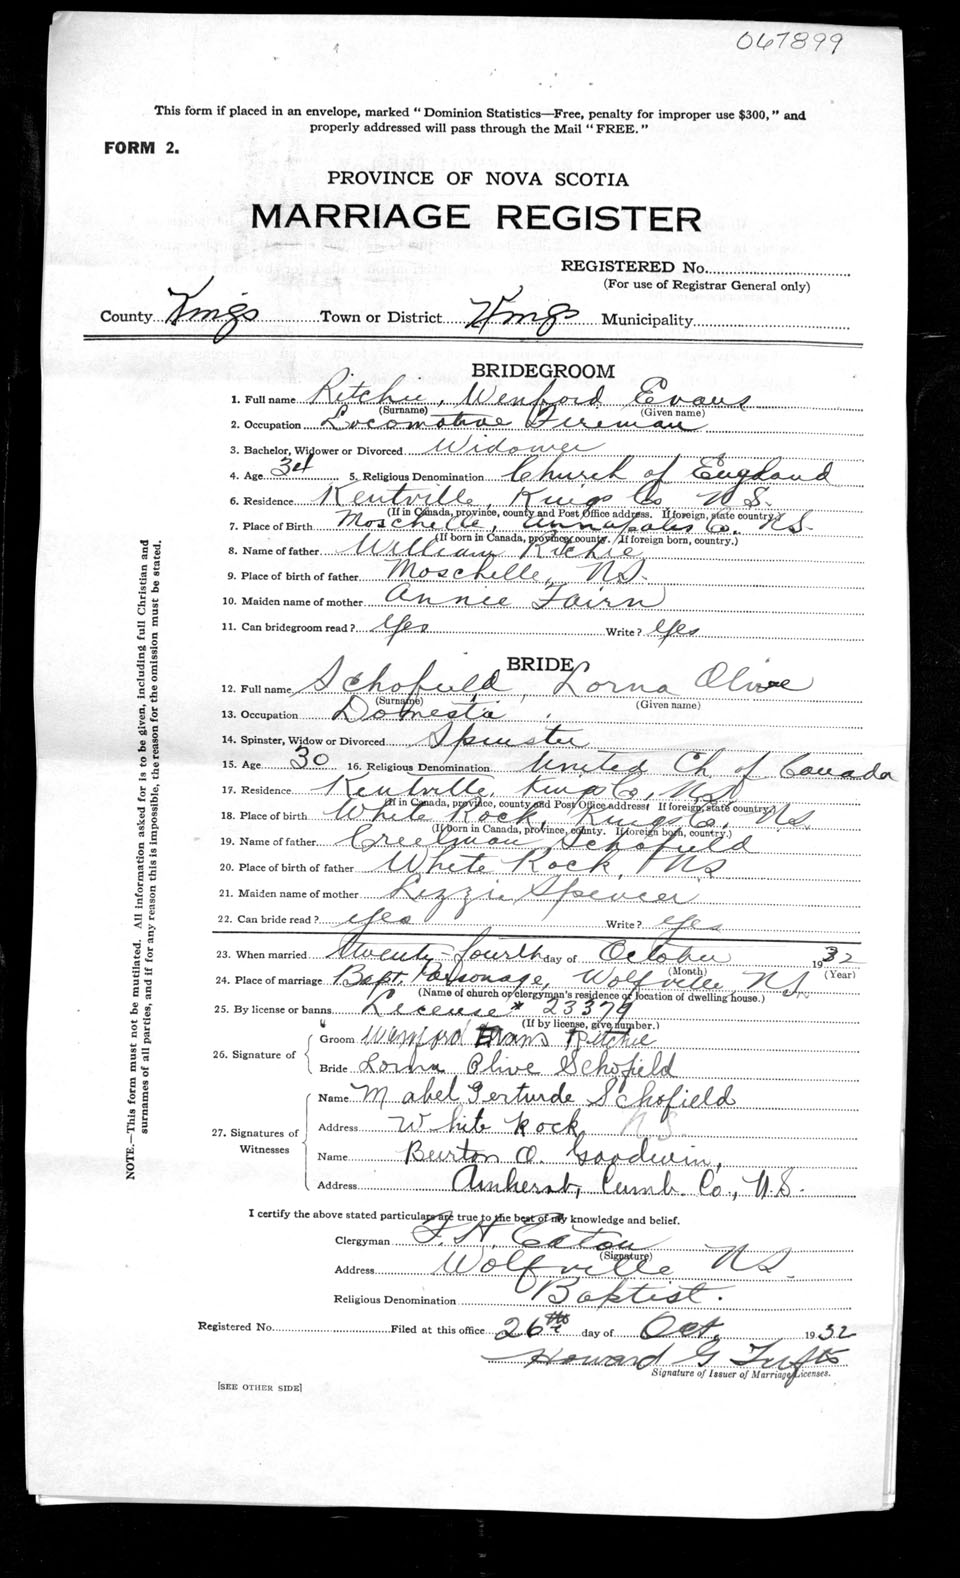 067899
This form if placed in an envelope, marked "Dominion Statistics—Free, penalty for improper use $300," and
properly addressed will pass through the Mail "FREE."
FORM 2.
PROVINCE OF NOVA SCOTIA
MARRIAGE REGISTER
REGISTERED No.
(For use of Registrar General only)
County Kings Town or District Kings Municipality
BRIDEGROOM
1. Full name Ritchie, Wenford Evans
(Surname) (Given name)
2. Occupation Locomotive Fireman
3. Bachelor, Widower or Divorced Widower
4. Age 34 5. Religious Denomination Church of England
6. Residence Kentville, Kings Co N.S.
(If in Canada, province, county and Post Office address. If foreign, state country.)
7. Place of Birth Moschelle, Annapolis Co. N.S.
(If born in Canada, province, county. If foreign born, country.)
8. Name of father William Ritchie
9. Place of birth of father Moschelle, N.S.
10. Maiden name of mother Annie Fairn
11. Can bridegroom read? Yes Write? Yes
BRIDE
12. Full name Schofield, Lorna Olive
(Surname) (Given name)
13. Occupation Domestic
14. Spinster, Widow or Divorced Spinster
15. Age 30 16. Religious Denomination United Ch of Canada
17. Residence Kentville, Kings Co, N.S.
(If in Canada, province, county and Post Office address. If foreign, state country.)
18. Place of birth White Rock, Kings Co. N.S.
(If born in Canada, province, county. If foreign born, country.)
19. Name of father Creelman Schofield
20. Place of birth of father White Rock, NS
21. Maiden name of mother Lizzie Spencer
22. Can bride read? Yes Write? Yes
23. When married twenty-fourth day of October 1932
(Month) (Year)
24. Place of marriage Bapt. Parsonage, Wolfville, N.S.
(Name of church or clergyman's residence or location of dwelling house.)
25. By license or banns License # 23379
(If by license, give number.)
26. Signature of
Groom Wenford Evans Ritchie
Bride Lorna Olive Schofield
27. Signatures of Witnesses
Name Mabel Gerturde Schofield
Address White Rock N.S.
Name Burton O. Goodwin,
Address Amherst, Cumb. Co., N.S.
I certify the above stated particulars are true to the best of my knowledge and belief.
Clergyman F. H. Eaton
(Signature)
Address Wolfville N.S.
Religious Denomination Baptist.
Registered No. Filed at this office 26th day of Oct. 1932
Howard G Tufts
Signature of Issuer of Marriage Licenses.
[SEE OTHER SIDE]
NOTE.—This form must not be mutilated. All information asked for is to be given, including full Christian and
surnames of all parties, and if for any reason this is impossible, the reason for the omission must be stated.